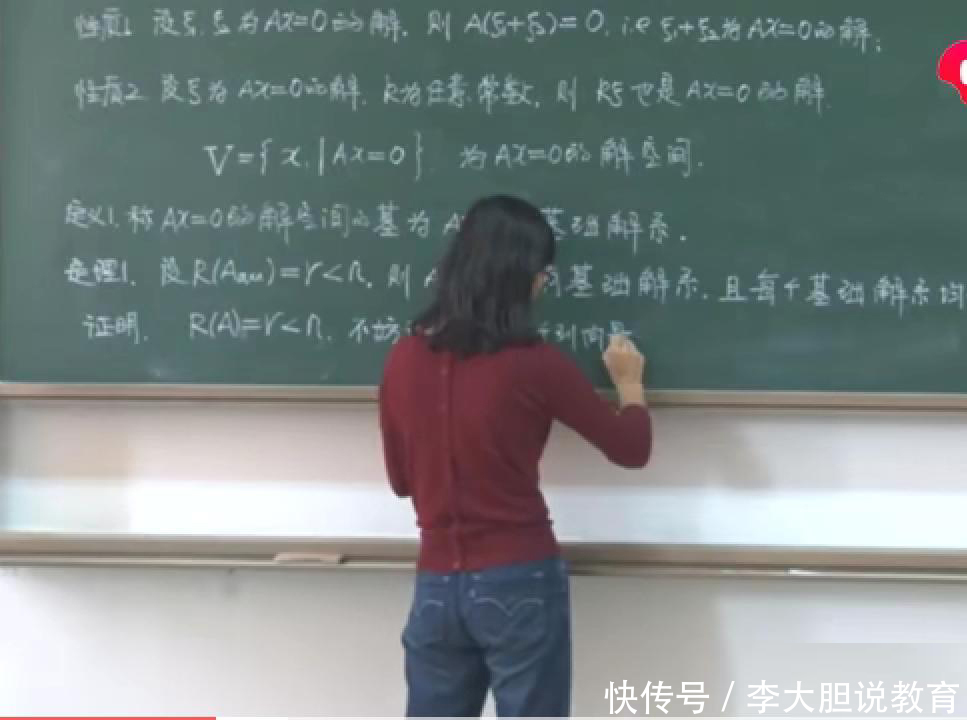 性质1 设ξ₁,ξ₂为AX=0的解, 则 A(ξ₁+ξ₂)=0, i.e ξ₁+ξ₂为AX=0的解;
性质2 设ξ为AX=0的解, k为任意常数, 则 kξ也是AX=0的解.
V={x|Ax=0} 为AX=0的解空间.
定义1. 称AX=0的解空间的基为A 基础解系.
定理1. 设R(Aₘₓₙ)=r<n, 则 基础解系, 且每个基础解系均
证明. R(A)=r<n, 不妨 列向量
快传号 / 李大胆说教育